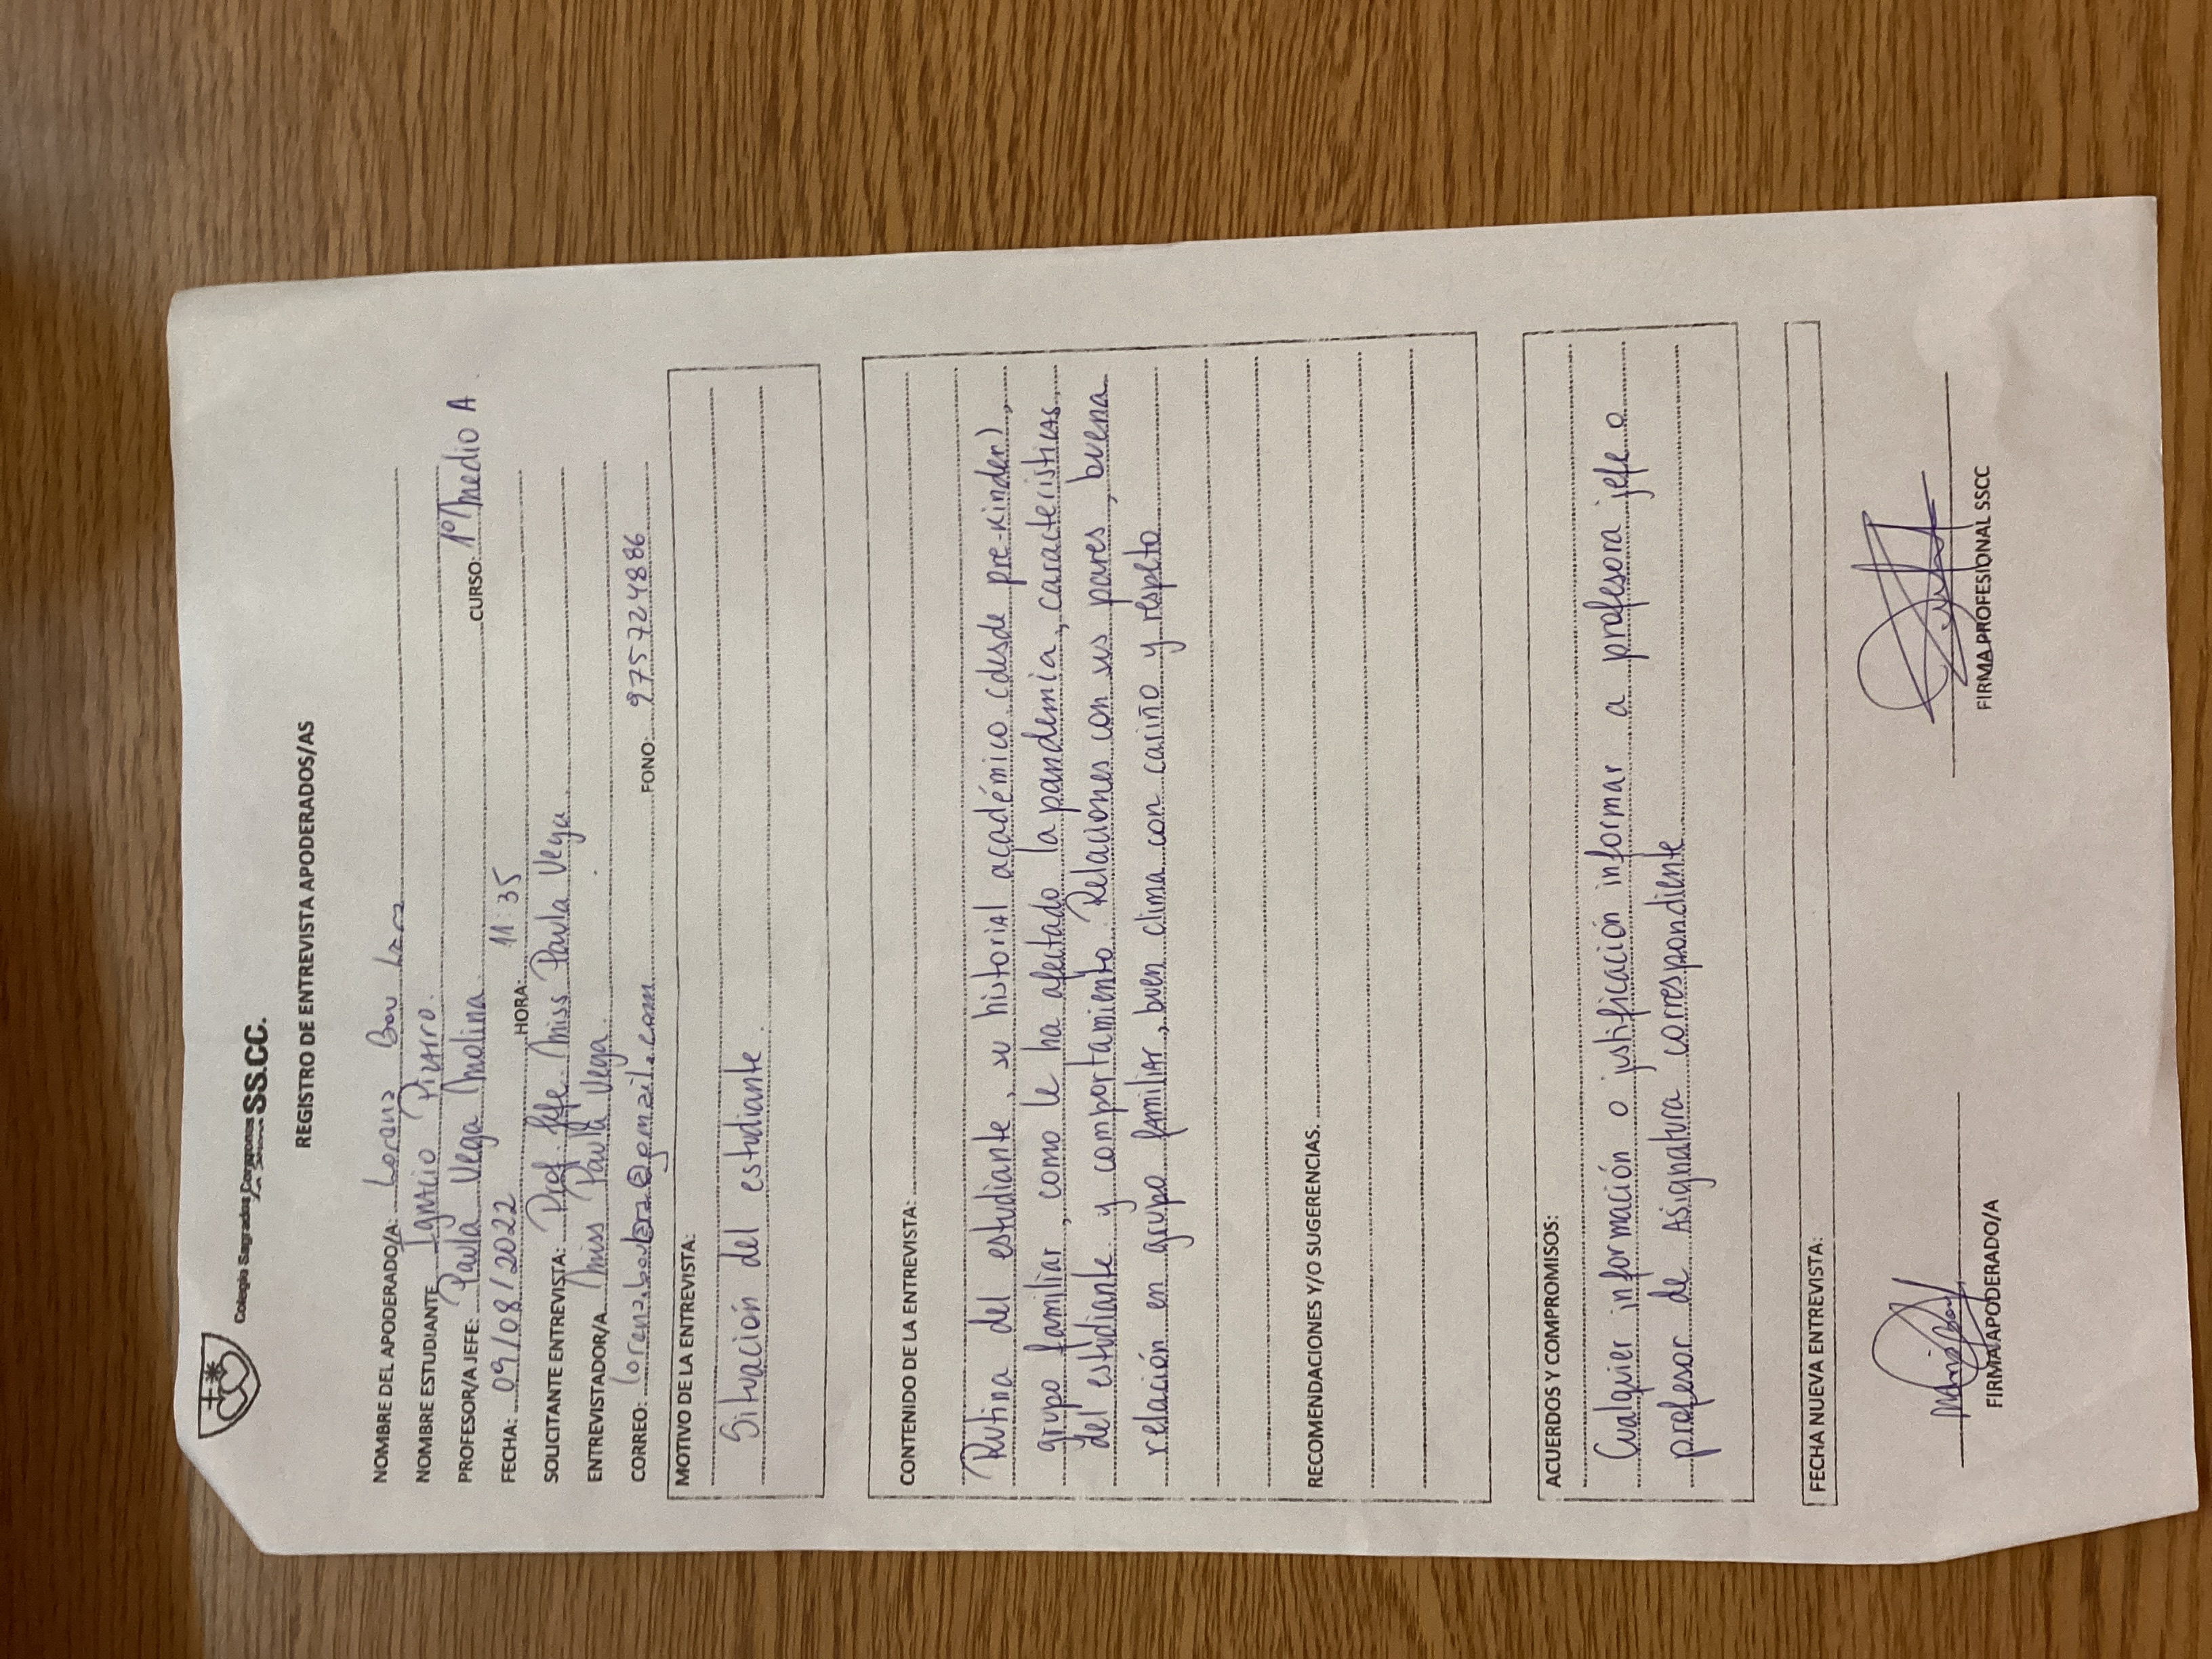 Colegio Sagrados Corazones SS.CC.
REGISTRO DE ENTREVISTA APODERADOS/AS
NOMBRE DEL APODERADO/A: Lorena Bou
NOMBRE ESTUDIANTE Ignacio Pizarro.
PROFESOR/A JEFE: Paula Vega Molina CURSO: 1º Medio A
FECHA: 09/08/2022 HORA: 11:35
SOLICITANTE ENTREVISTA: Prof. Jefe. Miss Paula Vega
ENTREVISTADOR/A Miss Paula Vega
CORREO: FONO: 975724886
MOTIVO DE LA ENTREVISTA:
Situación del estudiante.
CONTENIDO DE LA ENTREVISTA:
Rutina del estudiante, su historial académico (desde pre-kinder),
grupo familiar, como le ha afectado la pandemia, características
del estidiante y comportamiento. Relaciones con sus pares, buena
relación en grupo familiar, buen clima con cariño y respeto
RECOMENDACIONES Y/O SUGERENCIAS.
ACUERDOS Y COMPROMISOS:
Cualquier información o justificación informar a profesora jefe o
profesor de Asignatura correspondiente
FECHA NUEVA ENTREVISTA:
FIRMA APODERADO/A FIRMA PROFESIONAL SSCC